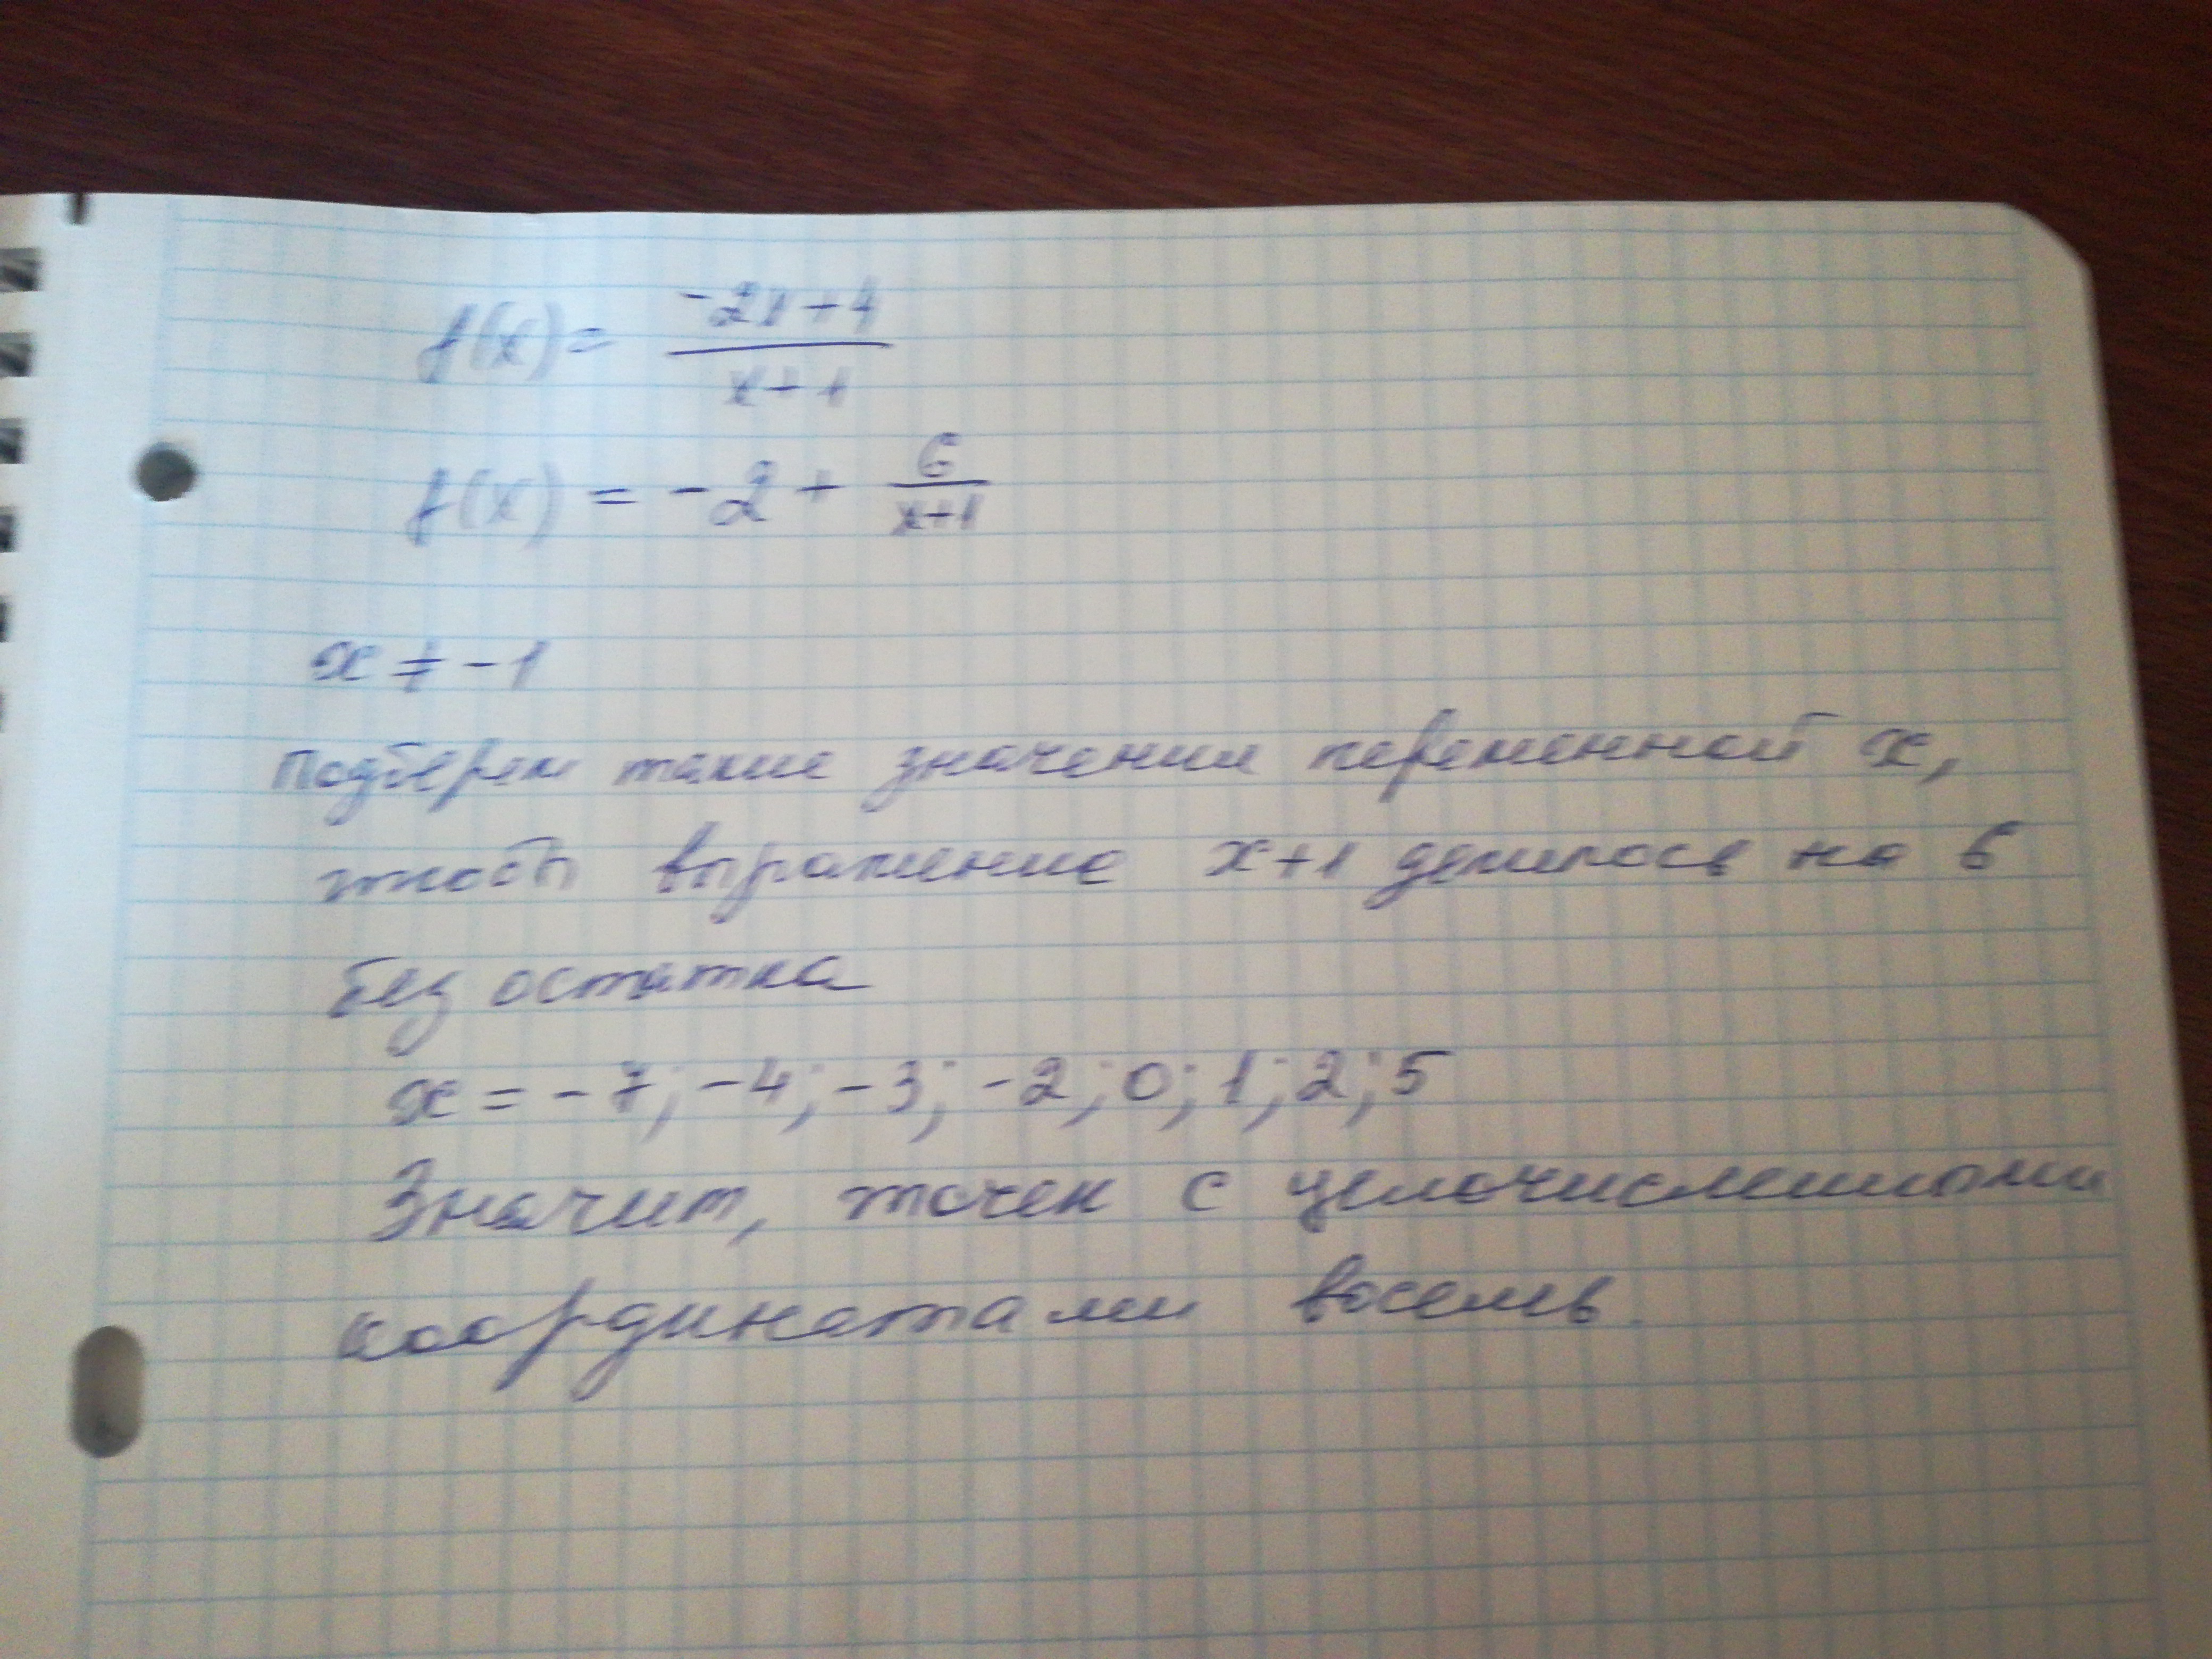 f(x) = (-2x+4)/(x+1)
f(x) = -2 + 6/(x+1)
x ≠ -1
Подберем такие значения переменной x,
чтобы выражение x+1 делилось на 6
без остатка
x = -7; -4; -3; -2; 0; 1; 2; 5
Значит, точек с целочисленными
координатами восемь.